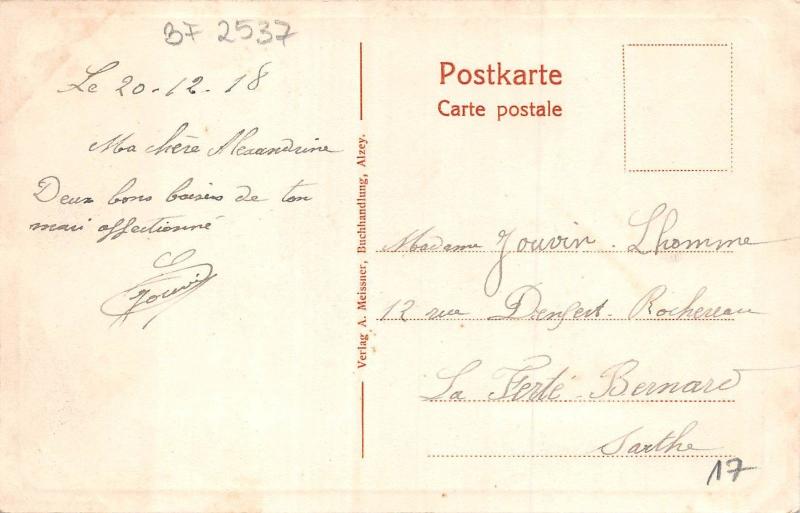 BF 2537
Le 20-12-18
Ma chère Alexandrine
Deux bons baisers de ton
mari affectionné
Jouvin
Verlag A. Meissner, Buchhandlung, Alzey.
Postkarte
Carte postale
Madame Jouvin-Lhomme
12 rue Denfert-Rochereau
La Ferté-Bernard
Sarthe
17